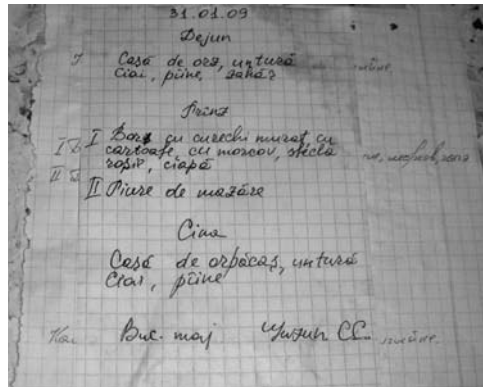 31.01.09
Dejun
Casă de orz, untură
Ciai, pîine, zahăr
Prînz
I Borș cu curechi murat cu
cartoafe, cu morcov, sfeclă
roșie, ciapă
II Piure de mazăre
Cina
Casă de orpăcaș, untură
Ciai, pîine
Buc. maj